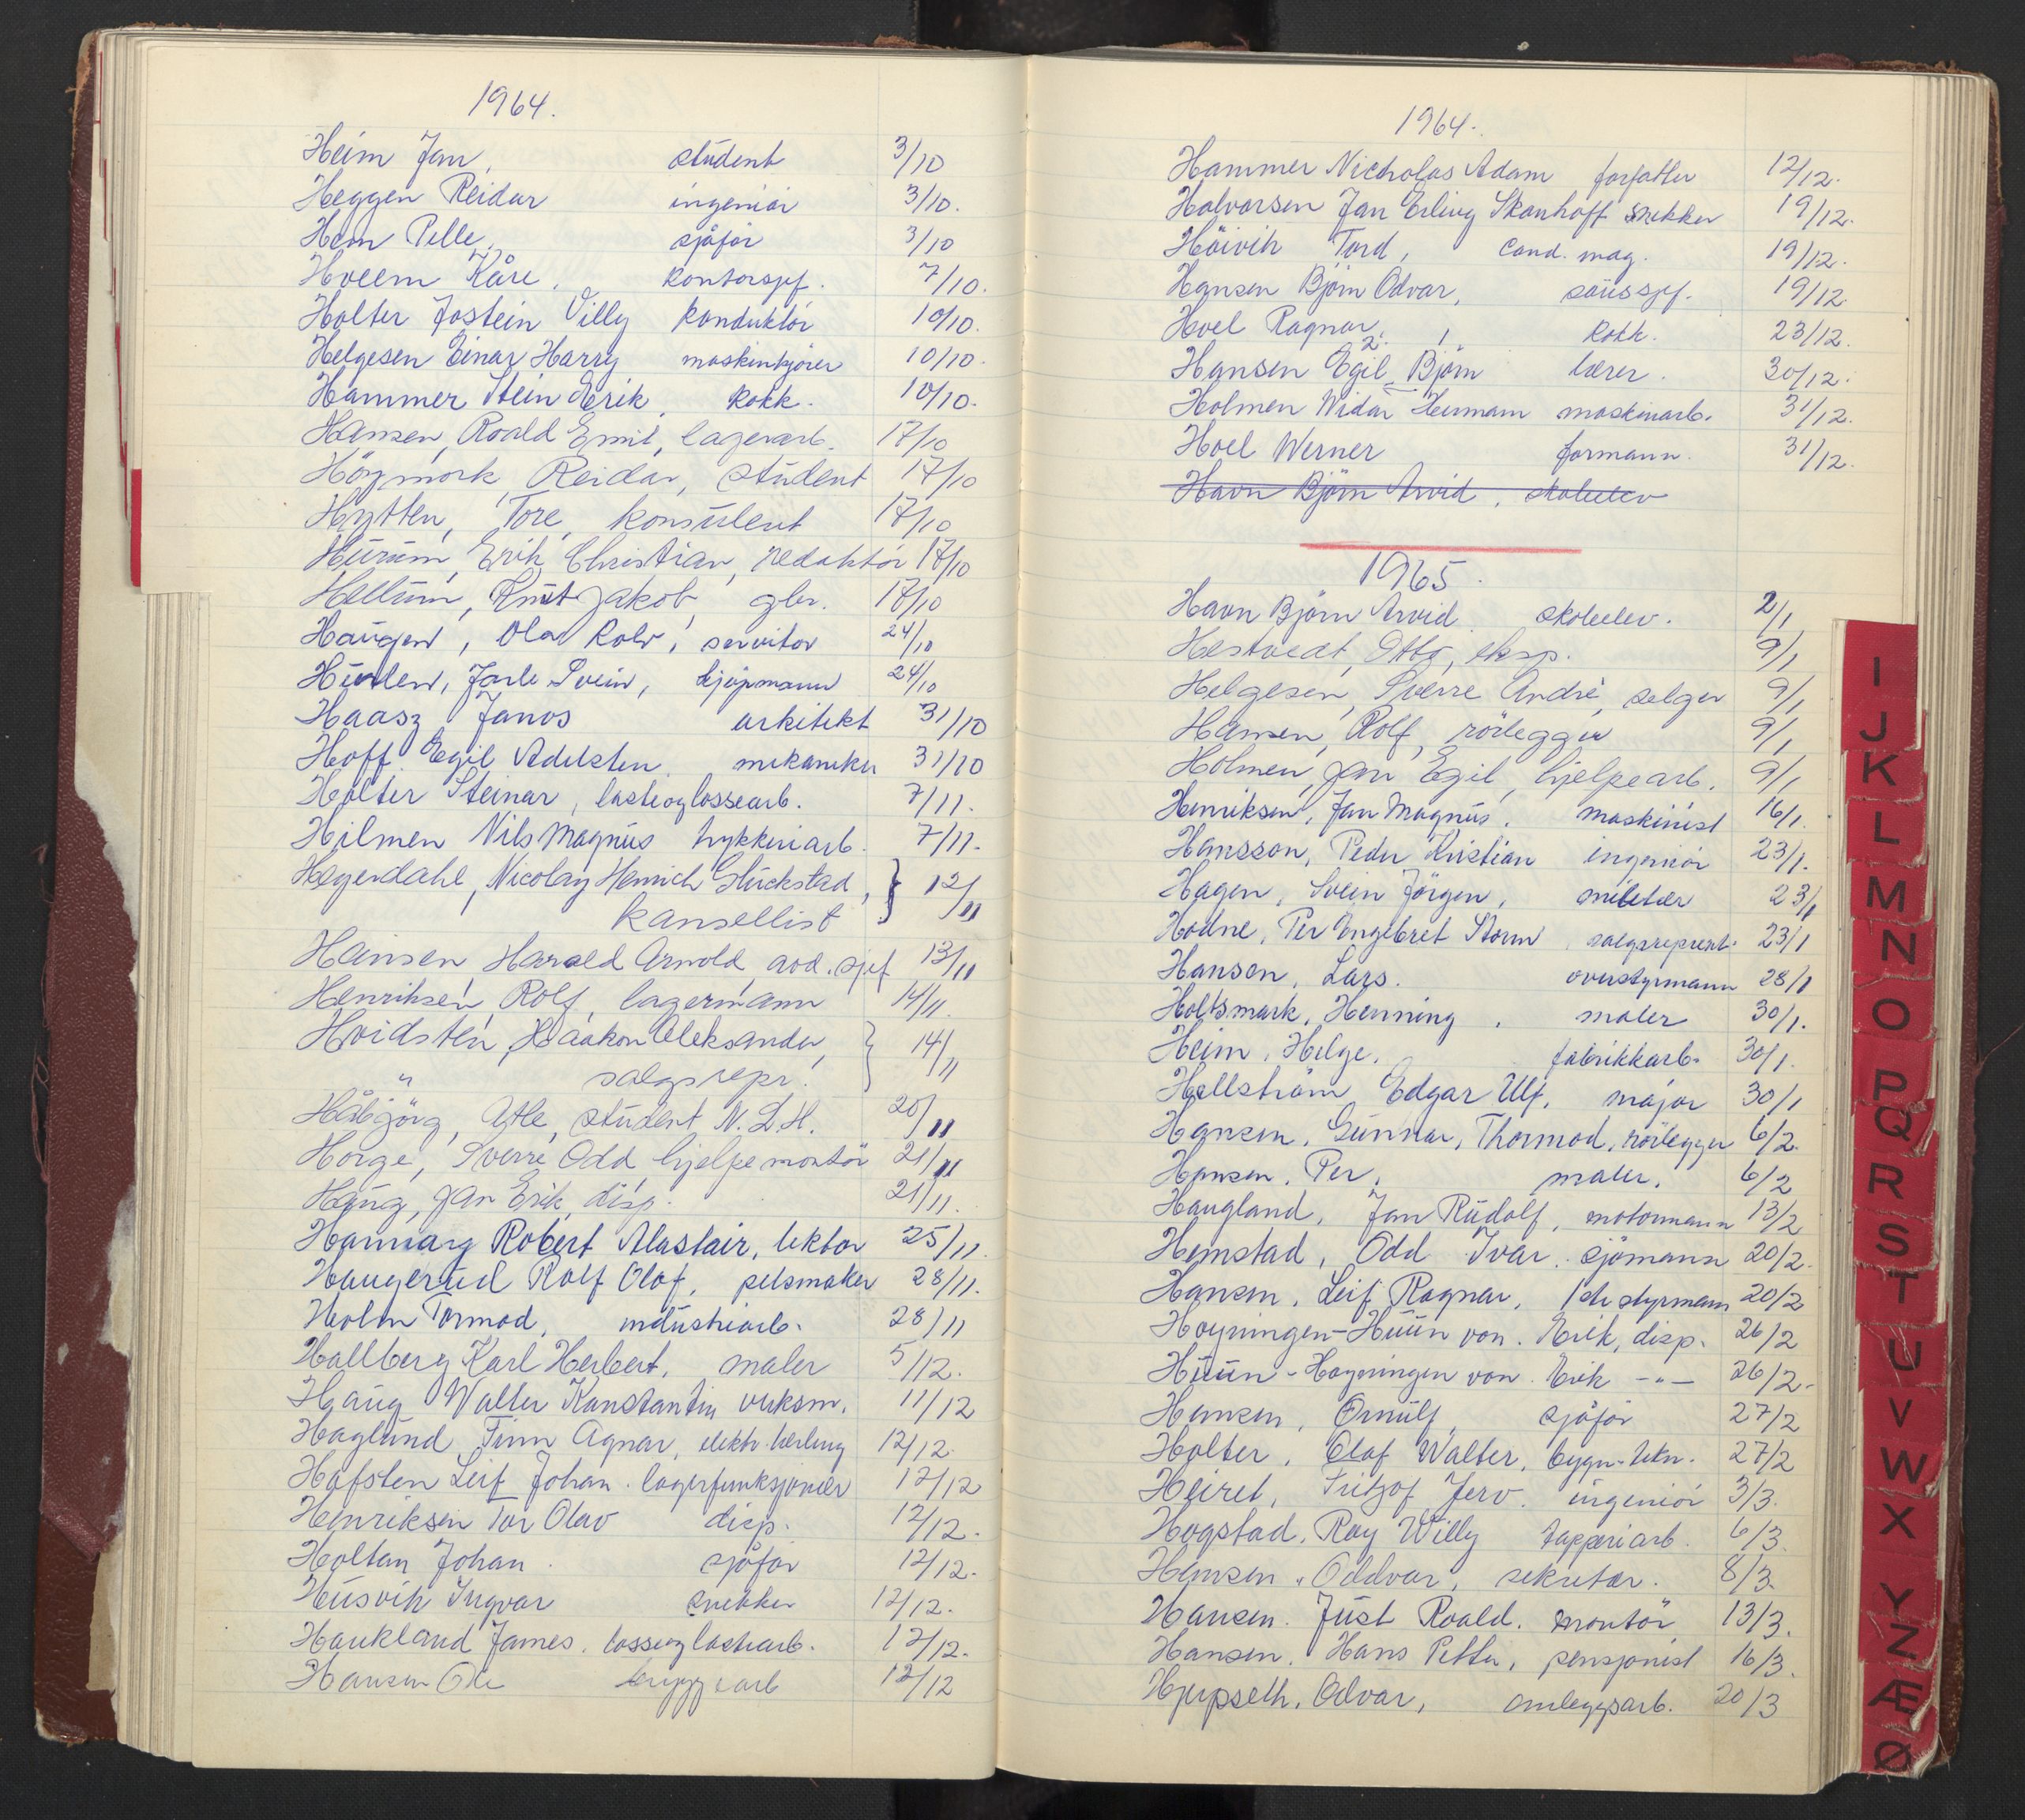 1964.
Heim Jan, student 3/10
Heggen Reidar ingeniör 3/10.
Hem Pelle, sjåför 3/10
Hveem Kåre, kontorsjef. 7/10.
Holter Jostein Villy konduktör 10/10.
Helgesen Einar Harry maskinkjörer 10/10.
Hammer Stein Erik, kokk. 10/10.
Hansen, Roald Emil, lagerarb. 17/10
Högmork, Reidar, student 17/10
Hytten, Tore, konsulent 17/10
Hurum, Erik Christian, redaktör 17/10
Hellum, Knut Jakob, gbr. 17/10
Haugen, Ola Rolv, servitör 24/10
Hurlen, Jarle Svein, kjöpmann 24/10
Haasz Janos arkitekt 31/10
Hoff Egil Adelsten mekaniker 31/10
Holter Steinar, lasteoglossearb. 7/11.
Hilmen Nils Magnus trykkeriarb. 7/11.
Heyerdahl, Nicolay Henrich Glückstad, } 12/11
kansellist
Hansen, Harald Arnold, avd.sjef 13/11
Henriksen, Rolf, lagermann 14/11.
Hvidsten, Haakon Aleksander, } 14/11
salgsrepr.
Håbjörg, Atle, student N.L.H. 20/11
Horge, Sverre Odd, hjelpemontör 21/11
Haug, Jan Erik, disp. 21/11.
Robert Alastair, lektor 25/11.
Haugerud Rolf Olaf, pelsmaker 28/11.
Holm Tormod, industriarb. 28/11
Hallberg Karl Herbert, maler 5/12.
Haug Walter Konstantin verksm. 11/12
Haglund Finn Agnar, elektr. lærling 12/12.
Hafsten Leif Johan. lagerfunksjonær 12/12
Henriksen Tor Olav disp. 12/12.
Holtan Johan. sjåför 12/12.
Husvik Ingvar snekker 12/12.
Haukland James. losseoglastearb. 12/12.
Hansen Ole bryggearb 12/12
1964.
Hammer Nicholas Adam forfatter 12/12.
Halvorsen Jan Erling Skanhoff snekker 19/12.
Höivik Tord, cand. mag. 19/12.
Hansen Björn Odvar, 19/12.
Hoel Ragnar, kokk. 23/12.
Hansen Egil 2. Björn lærer. 30/12.
Holmen Widar Hermann maskinarb. 31/12.
Hoel Werner formann. 31/12.
Havn Björn Arvid, skoleelev
1965.
Havn Björn Arvid skoleelev. 2/1
Hestvedt, Otto, eksp. 9/1
Helgesen, Sverre André, selger 9/1
Hansen, Rolf, rörlegger 9/1
Holmen, Jan Egil, hjelpearb. 9/1
Henriksen, Jan Magnus, maskinist 16/1.
Hansson, Peder Kristian ingeniör 23/1.
Hagen, Svein Jörgen, militær 23/1
Hodne, Per Engebret Storm, salgsrepresent. 23/1
Hanson, Lars. overstyrmann 28/1
Holtsmark, Henning, maler 30/1.
Heim, Helge, fabrikkarb. 30/1.
Hellström Edgar Ulf, major 30/1
Hansen, Gunnar, Thormod, rörlegger 6/2.
Hansen, Per, maler. 6/2
Haugland, Jan Rudolf, motormann 13/2
Hemstad, Odd Ivar. sjömann 20/2.
Hansen, Leif Ragnar, 1ste styrmann 20/2
Hoyningen-Huun von. Erik, disp. 26/2
Huun-Hoyningen von. Erik -"- 26/2.
Hansen, Ørnulf, sjåför 27/2
Holter, Olaf Walter, bygn. tekn. 27/2
Heiret, Fritjof Jerv. ingeniör 3/3.
Hogstad, Roy Willy tapperiarb. 6/3.
Hansen, Oddvar, sekretær. 8/3.
Hansen. Just Roald. montör 13/3.
Hansen, Hans Petter, pensjonist 16/3.
Hjupseth, Odvar, anleggsarb. 20/3
I
J
K
L
M
N
O
P
Q
R
S
T
U
V
W
X
Y
Z
Æ
Ø